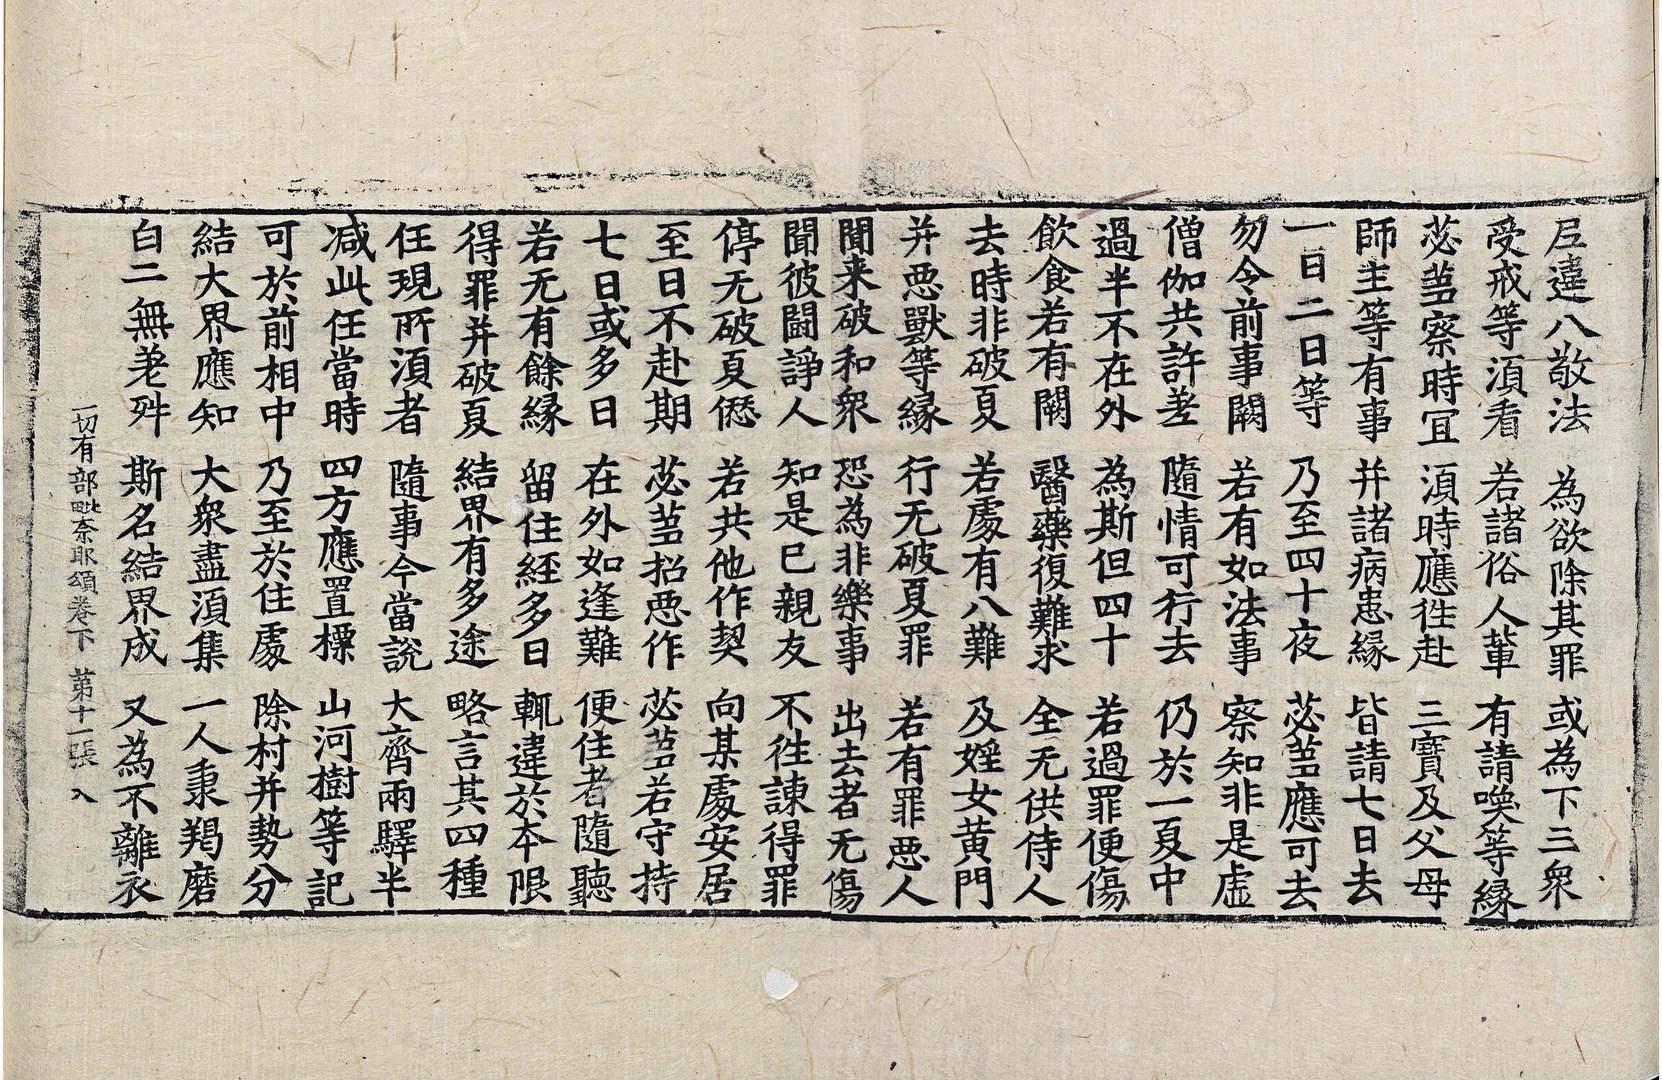 尼違八敬法　為欲除其罪　或為下三衆
受戒等湏看　若諸俗人軰　有請喚等縁
苾蒭察時宜　湏時應徃赴　三寶及父母
師主等有事　并諸病患縁　皆請七日去
一日二日等　乃至四十夜　苾蒭應可去
勿令前事闕　若有如法事　察知非是虚
僧伽共許差　隨情可行去　仍於一夏中
過半不在外　為斯但四十　若過罪便傷
飲食若有闕　醫藥復難求　全无供侍人
去時非破夏　若處有八難　及婬女黄門
并惡獸等縁　行无破夏罪　若有罪惡人
聞来破和衆　恐為非樂事　出去者无傷
聞彼鬪諍人　知是巳親友　不徃諫得罪
停无破夏愆　若共他作契　向某處安居
至日不赴期　苾蒭招惡作　苾蒭若守持
七日或多日　在外如逢難　便住者隨聽
若无有餘縁　留住經多日　輒違於夲限
得罪并破夏　結界有多途　略言其四種
任現所湏者　隨事今當說　大齊兩驛半
减此任當時　四方應置摽　山河樹等記
可於前相中　乃至於住處　除村并勢分
結大界應知　大衆盡湏集　一人秉羯磨
白二無差舛　斯名結界成　又為不離衣
一切有部毗奈耶頌卷下　苐十一張　入